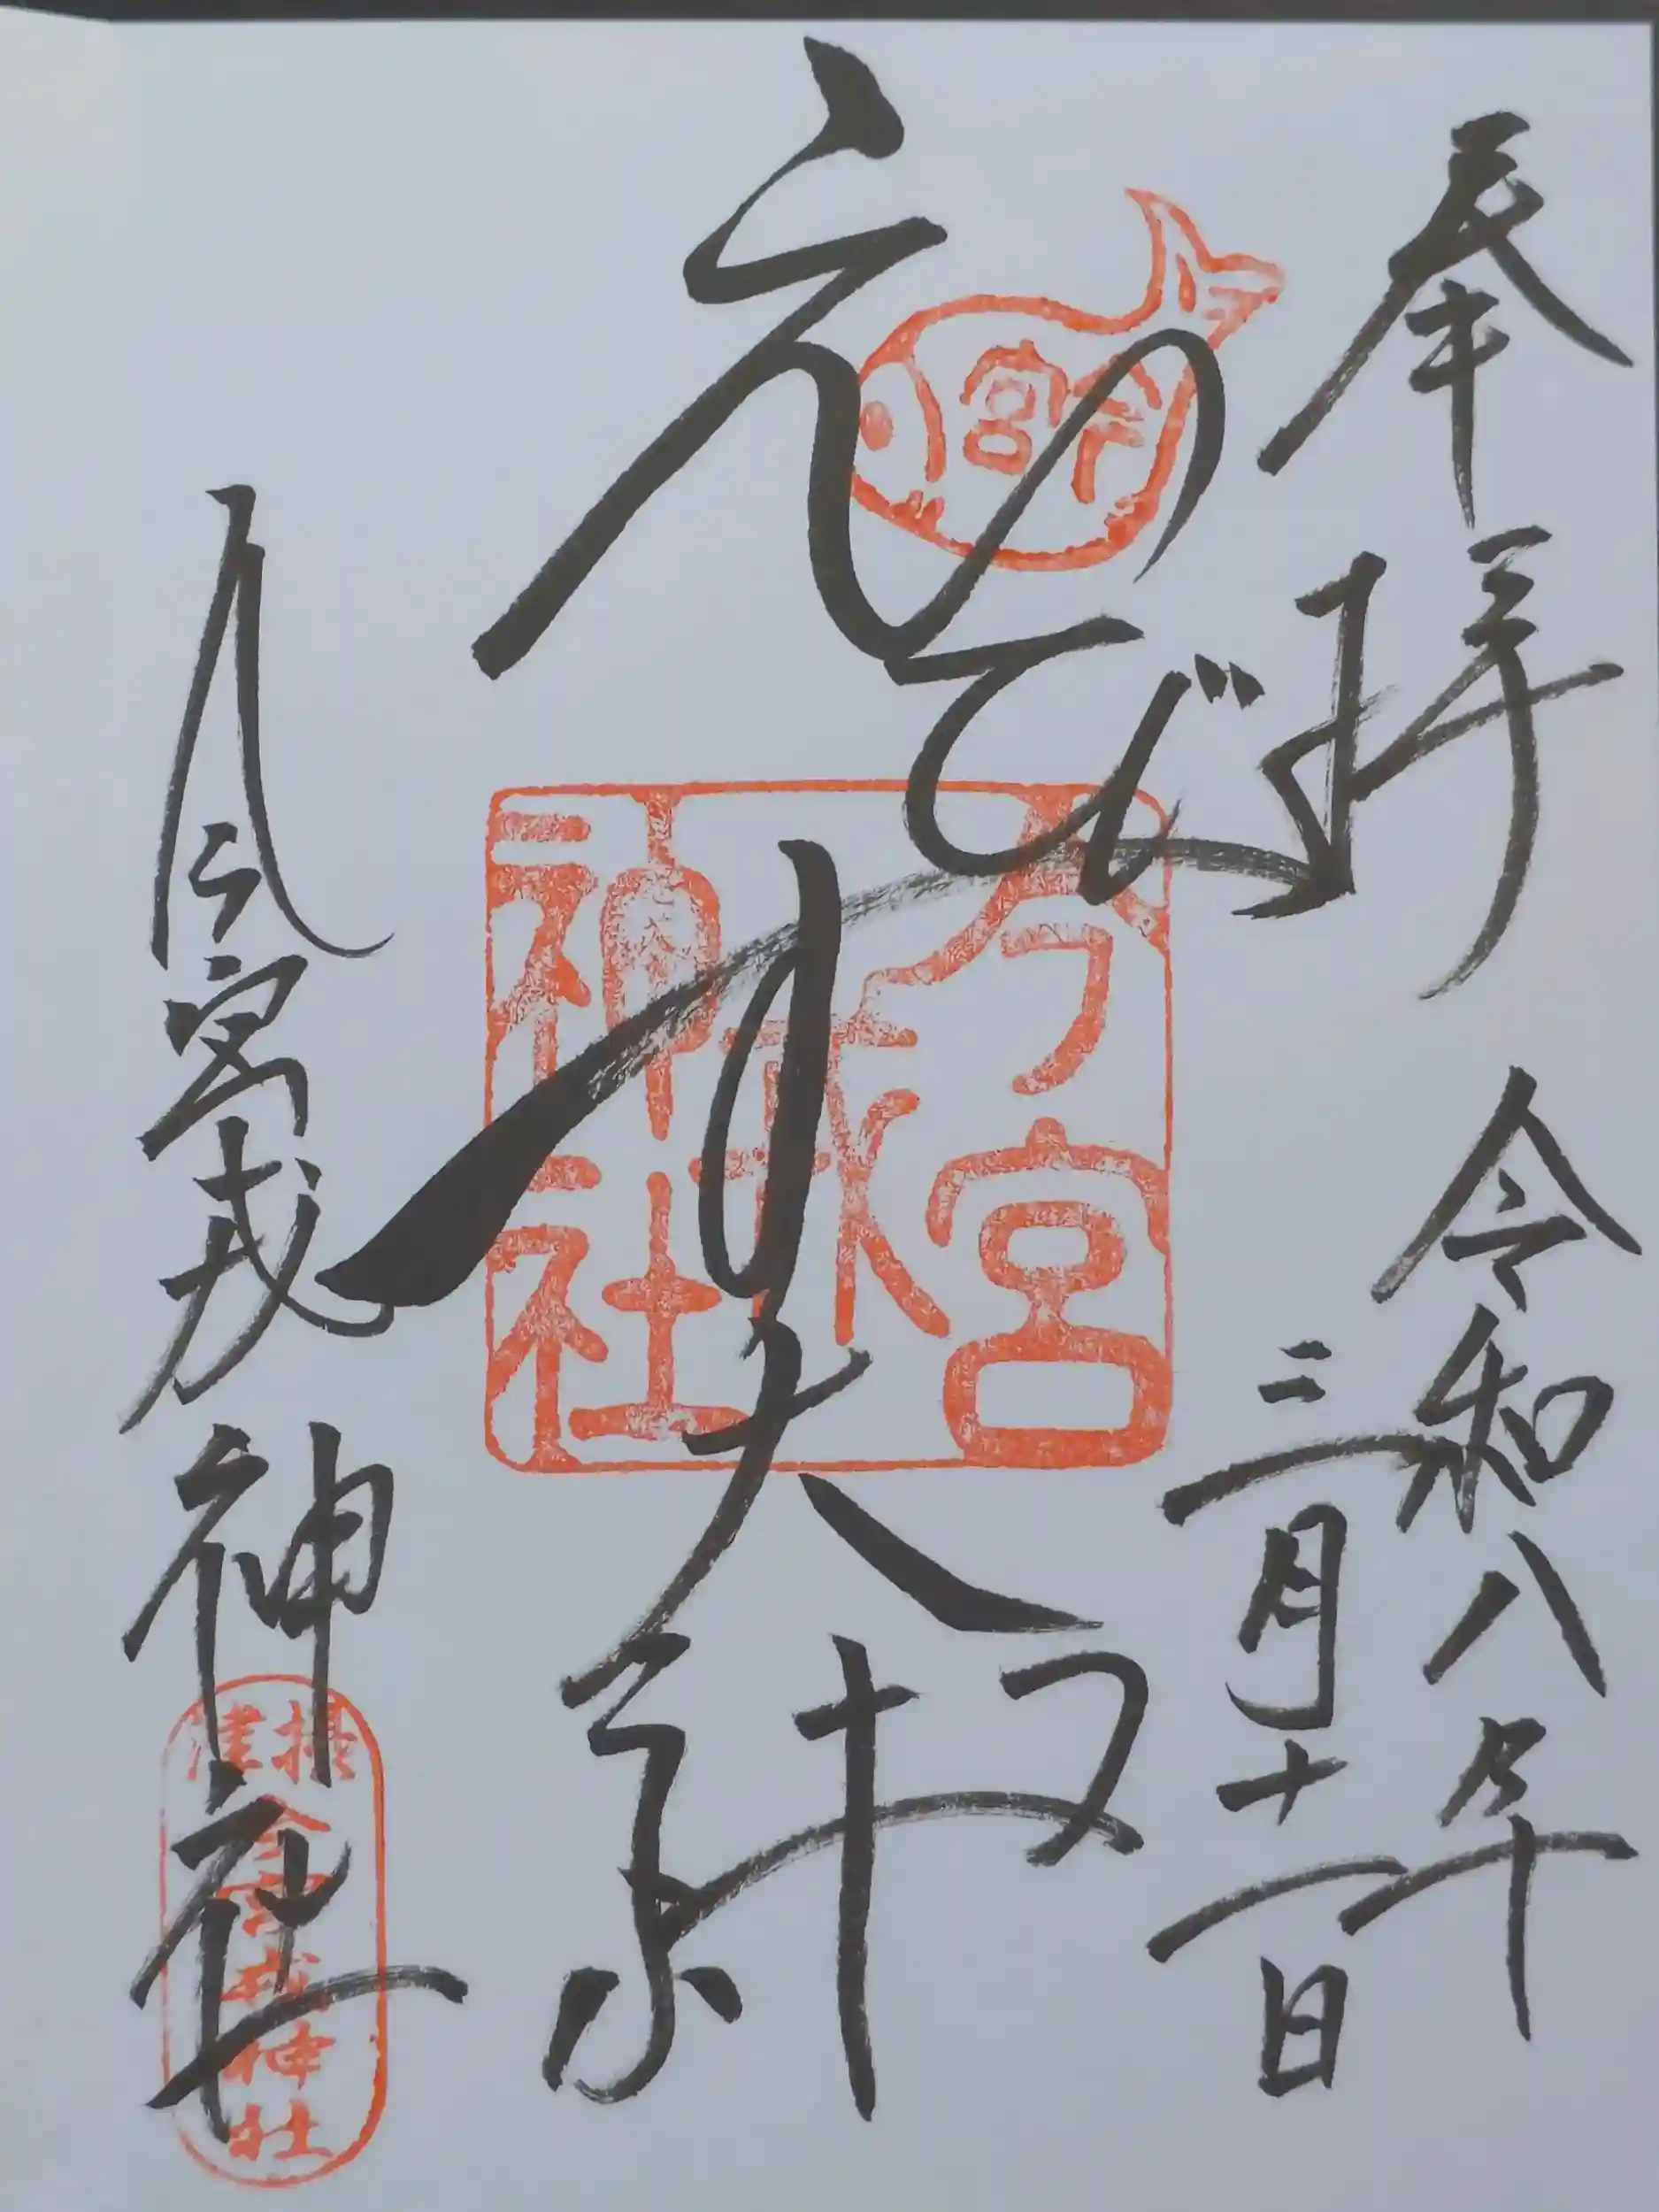 奉拝
令和八年
三月十一日
今宮
えびす大神
今宮戎神社
今宮戎神社
摂津
今宮戎神社